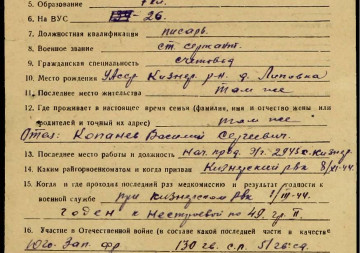 5. Образование 7 кл.
6. На ВУС -26.
7. Должностная квалификация писарь.
8. Военное звание ст. сержант.
9. Гражданская специальность счетовод
10. Место рождения УАССР Кизнер. р-н. д. Липовка
11. Последнее место жительства там же
12. Где проживает в настоящее время семья (фамилия, имя и отчество жены или
родителей и точный их адрес) там же
Отец: Копанев Василий Сергеевич.
13. Последнее место работы и должность нач. прод. Э/г 2945 с. Кизнер.
14. Каким райгорвоенкоматом и когда призван Кизнерский рвк 8/III-44.
15. Когда и где проходил последний раз медкомиссию и результат годности к
военной службе при Кизнерском рвк III-44.
годен к нестроевой по 49. гр. II.
16. Участие в Отечественной войне (в составе какой последней части и в качестве
Юго-Зап. фр 130 гв. с.п. 51 гв. сд.